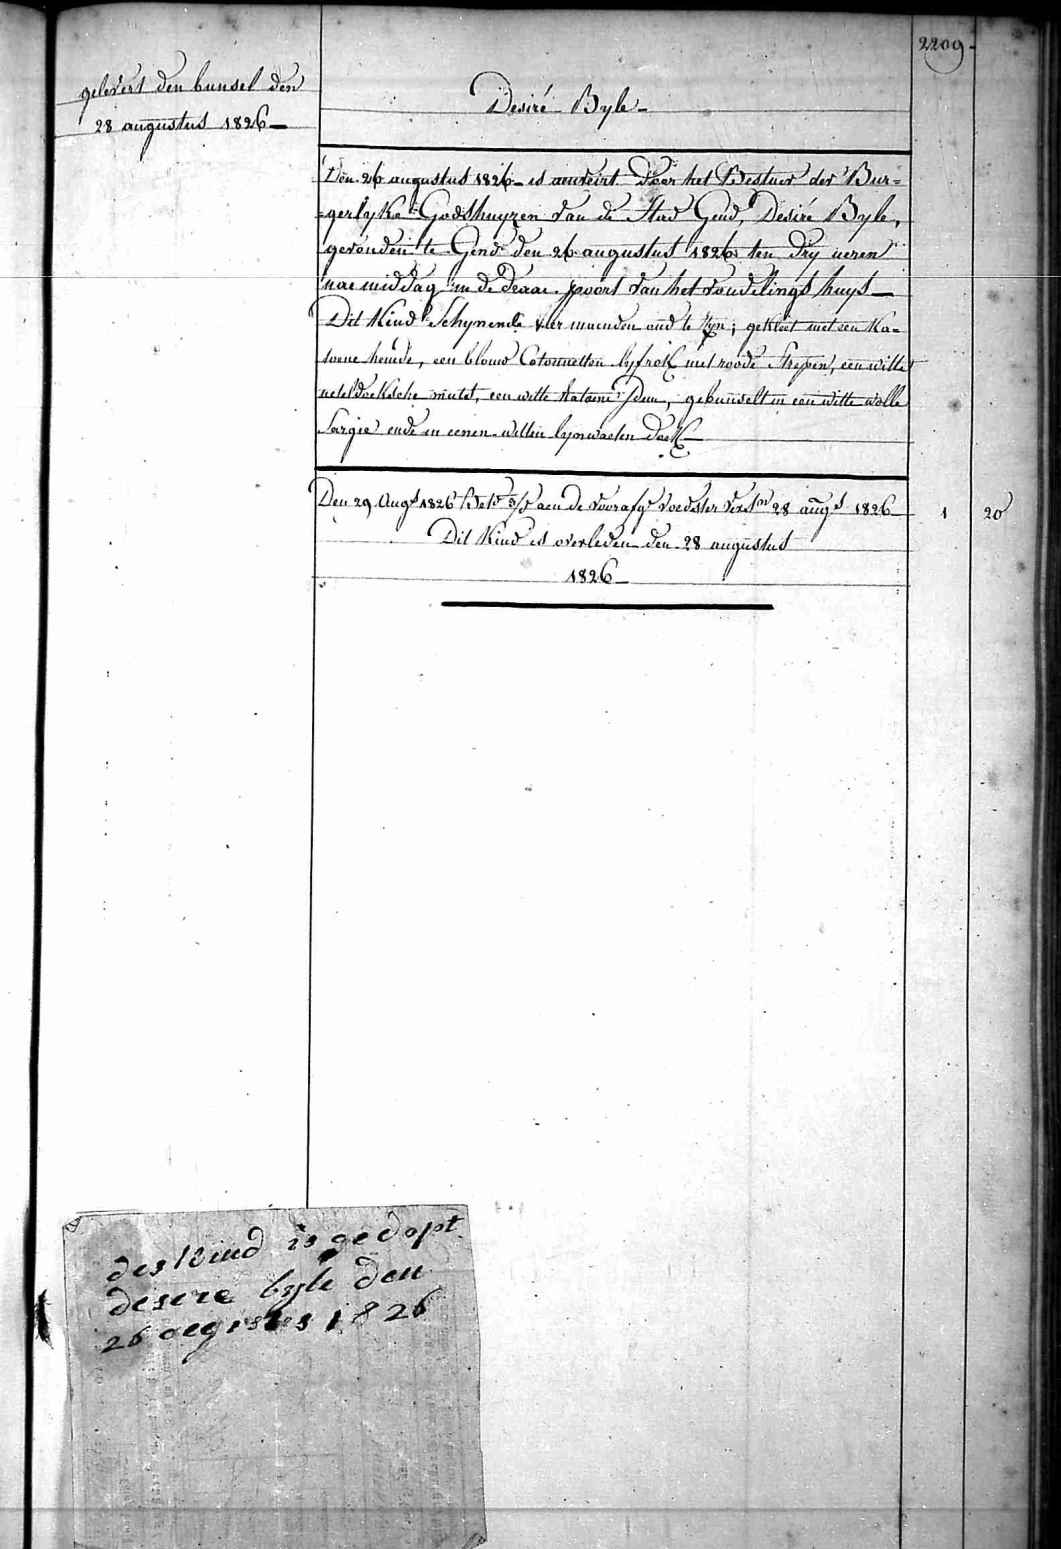 2209-
gelevert den bunsel den
28 augustus 1826-
Desiré Byle-
Den 26 augustus 1826- is aenveirt door het Bestuer der Bur=
=gerlyke Godshuyzen van de Stad Gend, Desiré Byle,
gevonden te Gend den 26 augustus 1826 ten dry ueren
nae middag in de draae poort van het vondelings huys-
Dit Kind Schynende vier maenden oud te zyn; gekleet met een Ka=
toene hemde, een blouw Cotonnetten lyfrok met roode strepen, een witte
neteldoeksche mutst, een witte katoene idem, gebunselt in een witte wolle
Sargie ende in eenen witten lynwaeten doek-
Den 29 Augs 1826 Bete 3/5 aen de voorafge voedster verstn 28 augs 1826- 1 20
Dit Kind is overleden den 28 augustus
1826-
des kind is gedopt
desere byle den
26 oegistes 1826